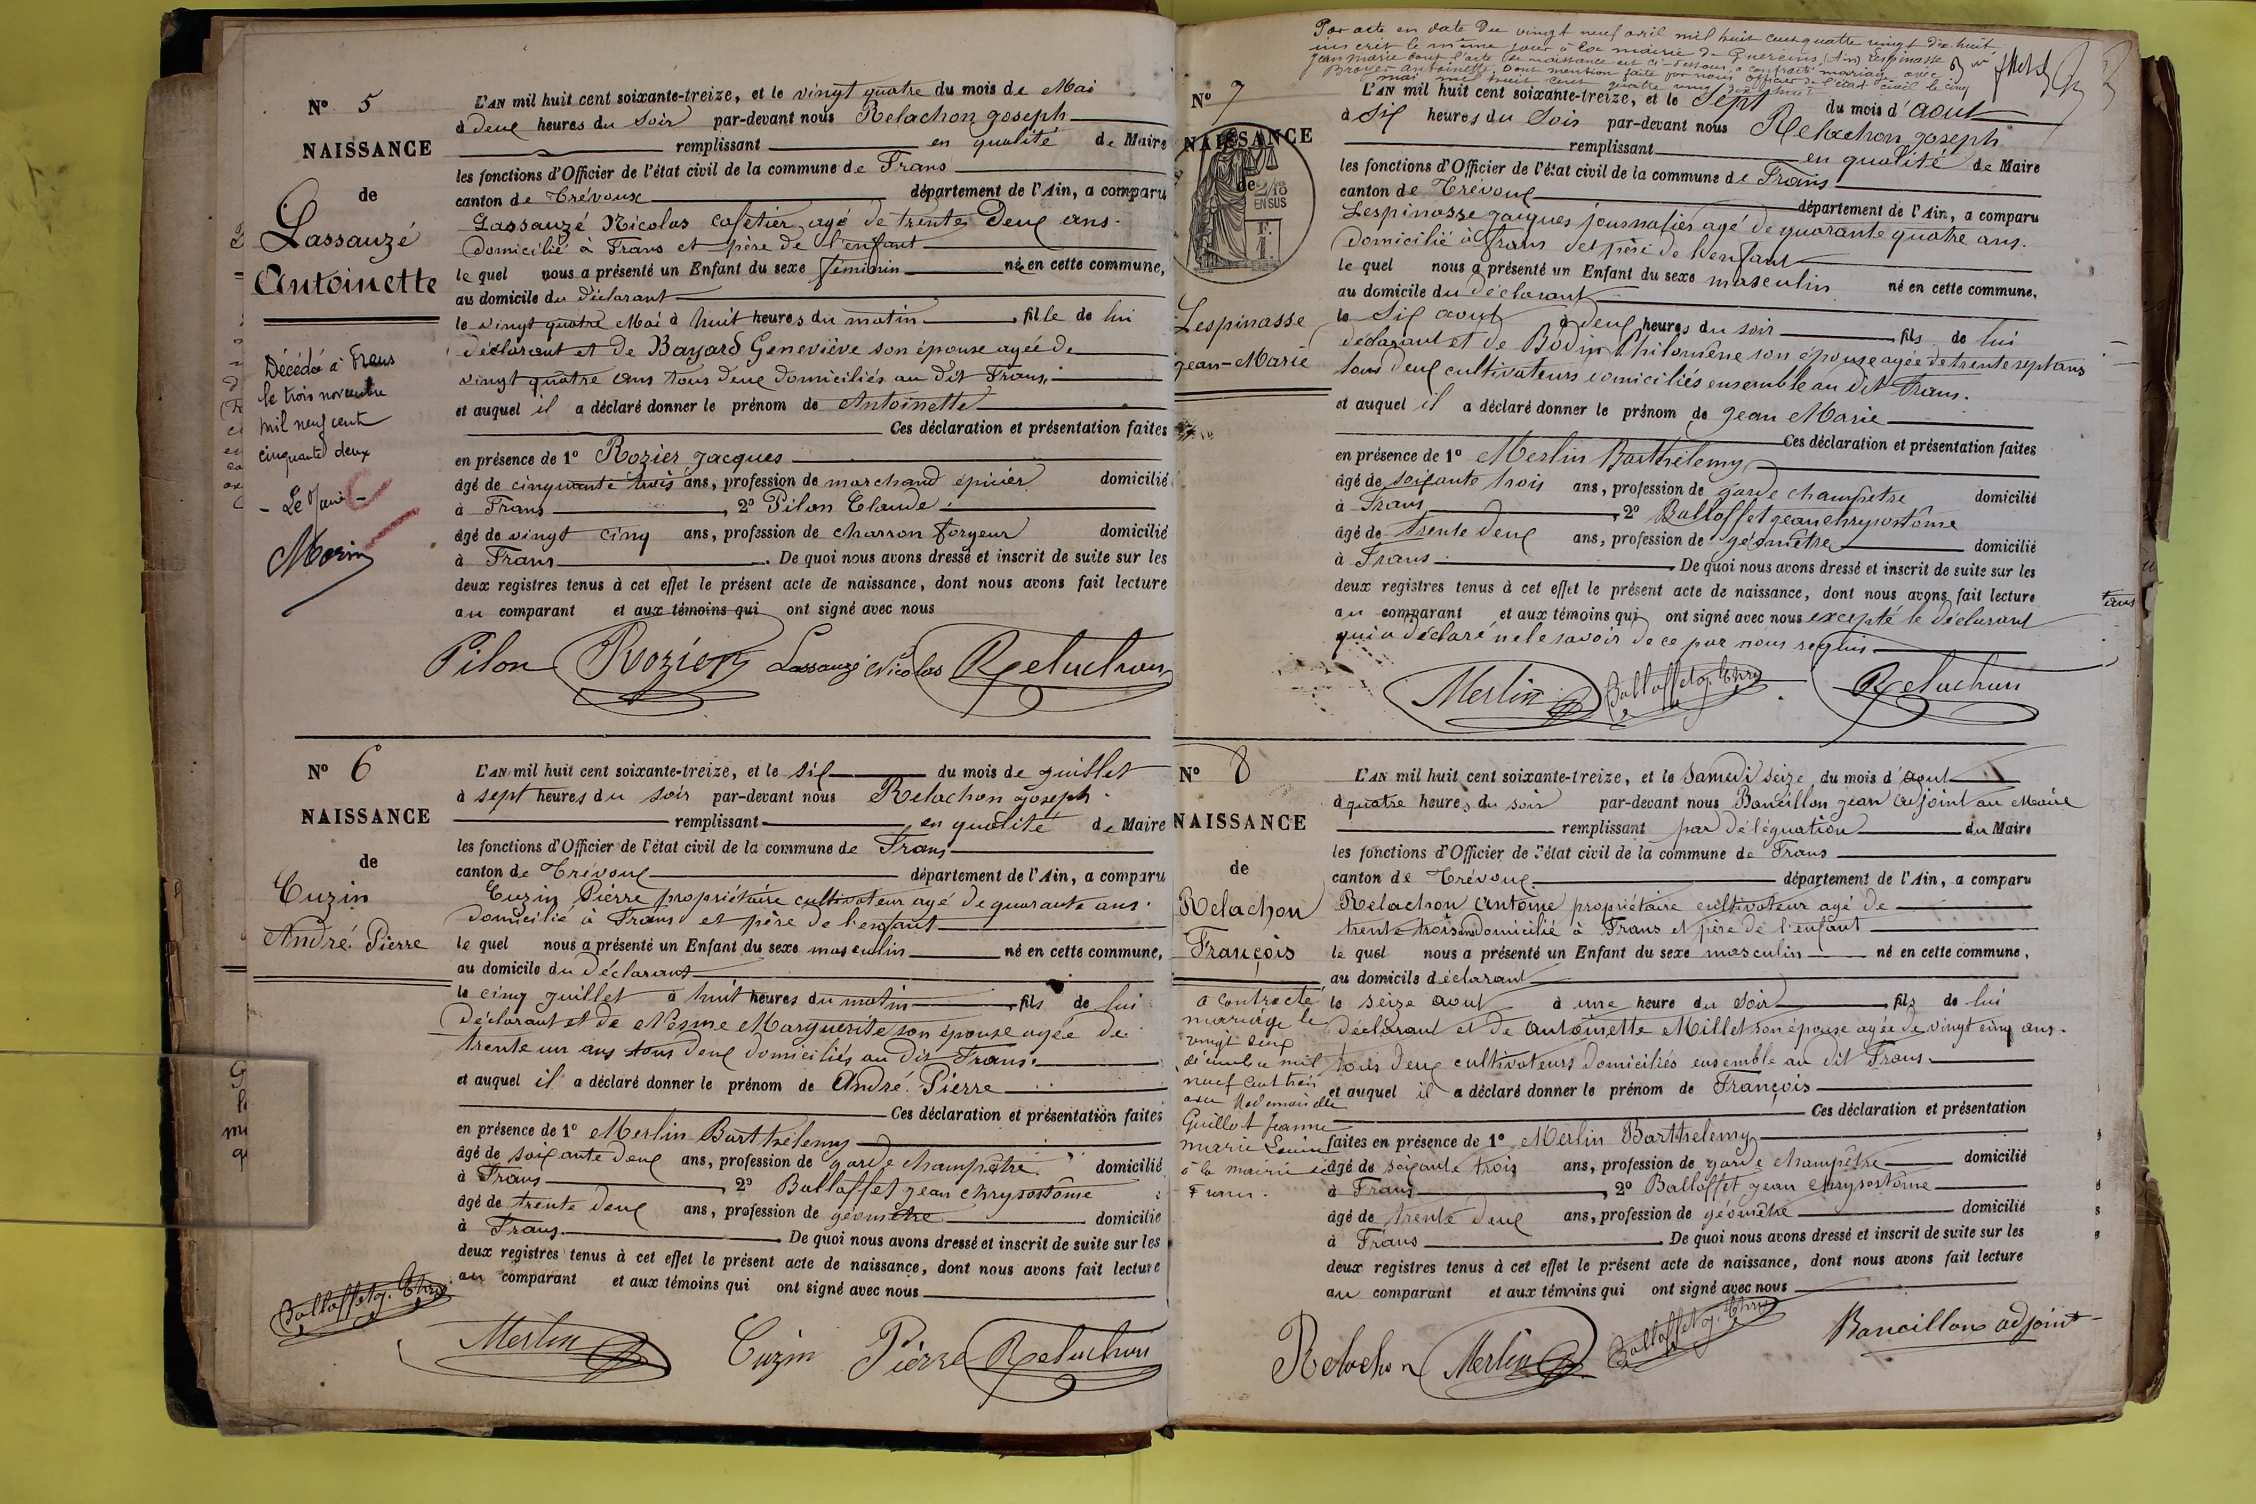 N° 5
NAISSANCE
de
Lassauzé
Antoinette
Décédée à Frans
le trois novembre
mil neuf cent
cinquante deux
- Le Maire -
Morin
L'AN mil huit cent soixante-treize, et le vingt quatre du mois de Mai
à deux heures du soir par-devant nous Relachon Joseph
remplissant en qualité de Maire
les fonctions d'Officier de l'état civil de la commune de Frans
canton de Trévoux département de l'Ain, a comparu
Lassauzé Nicolas cafetier agé de trente Deux ans.
domicilié à Frans et père de l'enfant
le quel nous a présenté un Enfant du sexe féminin né en cette commune,
au domicile du déclarant
le vingt quatre Mai à huit heures du matin fille de lui
déclarant et de Bayard Geneviève son épouse agée de
vingt quatre ans tous deux domiciliés au dit Frans.
et auquel il a déclaré donner le prénom de Antoinette
Ces déclaration et présentation faites
en présence de 1° Rozier Jacques
âgé de cinquante trois ans, profession de marchand épicier domicilié
à Frans, 2° Pilon Claude
âgé de vingt cinq ans, profession de charron forgeur domicilié
à Frans. De quoi nous avons dressé et inscrit de suite sur les
deux registres tenus à cet effet le présent acte de naissance, dont nous avons fait lecture
au comparant et aux témoins qui ont signé avec nous
Pilon Rozier Lassauzé Nicolas Relachon
N° 6
NAISSANCE
de
Cuzin
André Pierre
L'AN mil huit cent soixante-treize, et le six du mois de Juillet
à sept heures du soir par-devant nous Relachon Joseph.
remplissant en qualité de Maire
les fonctions d'Officier de l'état civil de la commune de Frans
canton de Trévoux département de l'Ain, a comparu
Cuzin Pierre propriétaire cultivateur agé de quarante ans.
domicilié à Frans et père de l'enfant
le quel nous a présenté un Enfant du sexe masculin né en cette commune,
au domicile du déclarant
le cinq Juillet à huit heures du matin, fils de lui
déclarant et de Nesme Marguerite son épouse agée de
trente un ans tous deux domiciliés au dit Frans.
et auquel il a déclaré donner le prénom de André Pierre
Ces déclaration et présentation faites
en présence de 1° Merlin Barthélemy
âgé de soixante deux ans, profession de garde champêtre domicilié
à Frans, 2° Balloffet Jean Chrysostôme
âgé de trente deux ans, profession de géomètre domicilié
à Frans. De quoi nous avons dressé et inscrit de suite sur les
deux registres tenus à cet effet le présent acte de naissance, dont nous avons fait lecture
au comparant et aux témoins qui ont signé avec nous
Balloffet J. Chry
Merlin Cuzin Pierre Relachon
Par acte en date du vingt neuf avril mil huit cent quatre vingt dix huit
inscrit le même jour à la mairie de Guereins (Ain) Lespinasse
Jean Marie dont l'acte de naissance est ci-dessous a contracté mariage avec
Broyer Antoinette. Dont mention faite par nous officier de l'état civil le cinq
mai mil huit cent quatre vingt dix huit
N° 7
NAISSANCE
de
2/10 EN SUS
Lespinasse
Jean-Marie
L'AN mil huit cent soixante-treize, et le Sept du mois d'aout
à six heures du Soir par-devant nous Relachon Joseph
remplissant en qualité de Maire
les fonctions d'Officier de l'état civil de la commune de Frans
canton de Trévoux département de l'Ain, a comparu
Lespinasse Jacques journalier agé de quarante quatre ans.
domicilié à Frans et père de l'enfant
le quel nous a présenté un Enfant du sexe masculin né en cette commune,
au domicile du déclarant
le Six aout à deux heures du soir fils de lui
déclarant et de Bodin Philomène son épouse agée de trente sept ans
tous deux cultivateurs domiciliés ensemble au dit Frans.
et auquel il a déclaré donner le prénom de Jean Marie
Ces déclaration et présentation faites
en présence de 1° Merlin Barthélemy
âgé de soixante trois ans, profession de garde champêtre domicilié
à Frans, 2° Balloffet Jean Chrysostôme
âgé de trente deux ans, profession de géomètre domicilié
à Frans. De quoi nous avons dressé et inscrit de suite sur les
deux registres tenus à cet effet le présent acte de naissance, dont nous avons fait lecture
au comparant et aux témoins qui ont signé avec nous excepté le déclarant
qui a déclaré ne le savoir de ce par nous requis
Merlin Balloffet J. Chry Relachon
N° 8
NAISSANCE
de
Relachon
François
a contracté
mariage le
vingt deux
décembre mil
neuf cent trois
avec Mademoiselle
Guillot Jeanne
Marie Louise
à la mairie de
Frans.
L'AN mil huit cent soixante-treize, et le Samedi seize du mois d'aout
à quatre heures du soir par-devant nous Bancillon Jean adjoint au Maire
remplissant par délégation du Maire
les fonctions d'Officier de l'état civil de la commune de Frans
canton de Trévoux département de l'Ain, a comparu
Relachon Antoine propriétaire cultivateur agé de
trente trois ans domicilié à Frans et père de l'enfant
le quel nous a présenté un Enfant du sexe masculin né en cette commune,
au domicile déclarant
le seize aout à une heure du soir, fils de lui
déclarant et de Antoinette Millet son épouse agée de vingt cinq ans.
tous deux cultivateurs domiciliés ensemble au dit Frans.
et auquel il a déclaré donner le prénom de François
Ces déclaration et présentation
faites en présence de 1° Merlin Barthélemy
âgé de soixante trois ans, profession de garde champêtre domicilié
à Frans, 2° Balloffet Jean Chrysostôme
âgé de trente deux ans, profession de géomètre domicilié
à Frans. De quoi nous avons dressé et inscrit de suite sur les
deux registres tenus à cet effet le présent acte de naissance, dont nous avons fait lecture
au comparant et aux témoins qui ont signé avec nous
Relachon Merlin Balloffet J. Chry Bancillon adjoint